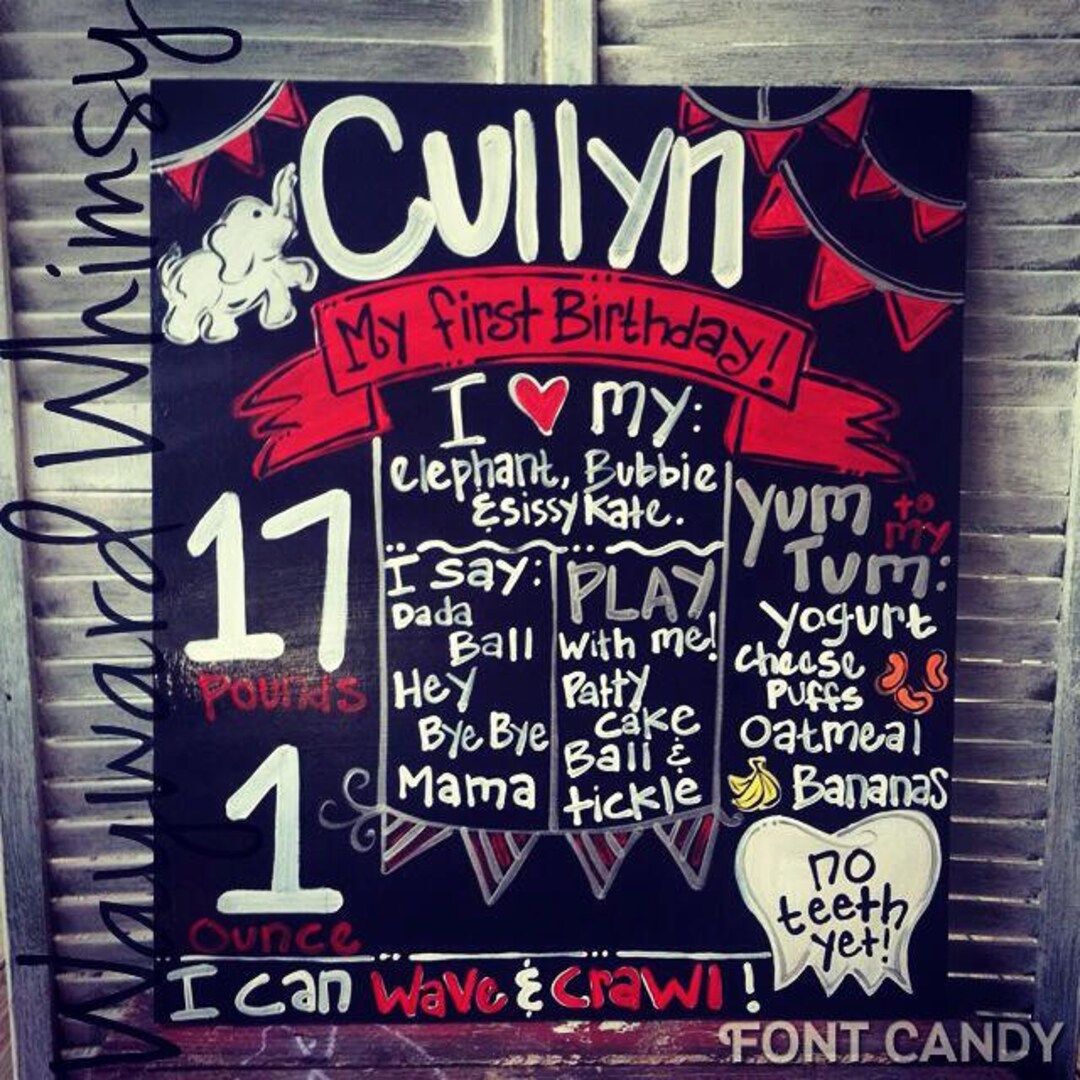 Wayward Whimsy
Cullyn
My first Birthday!
I ♥ my:
elephant, Bubbie
& sissy Kate.
17
Pounds
1
Ounce
I say:
Dada
Ball
Hey
Bye Bye
Mama
PLAY
with me!
Patty
cake
Ball &
tickle
Yum to
my
Tum:
Yogurt
cheese
Puffs
Oatmeal
Bananas
no
teeth
yet!
I can wave & crawl!
FONT CANDY